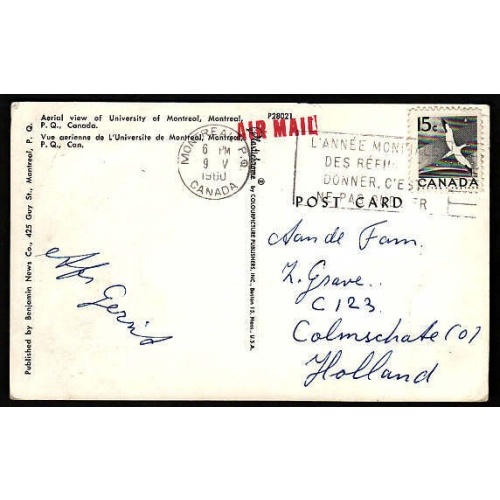 Aerial view of University of Montreal, Montreal,
P. Q., Canada.
Vue aerienne de L'Universite de Montreal, Montreal,
P. Q., Can.
P28021
AIR MAIL
MONTREAL P.Q.
6 PM
9 V
1960
CANADA
L'ANNÉE
DES
DONNER, C'EST
NE PAS
15c
CANADA
POST CARD
Published by Benjamin News Co., 425 Guy St., Montreal, P. Q.
Plastichrome ® by COLOURPICTURE PUBLISHERS, INC., Boston 15, Mass., U.S.A.
Aan de Fam.
Z. Grave
C 123
Colmschate (O)
Holland